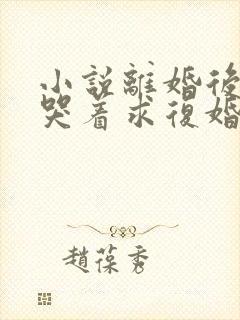 小説離婚後
哭着求復婚
趙葆秀